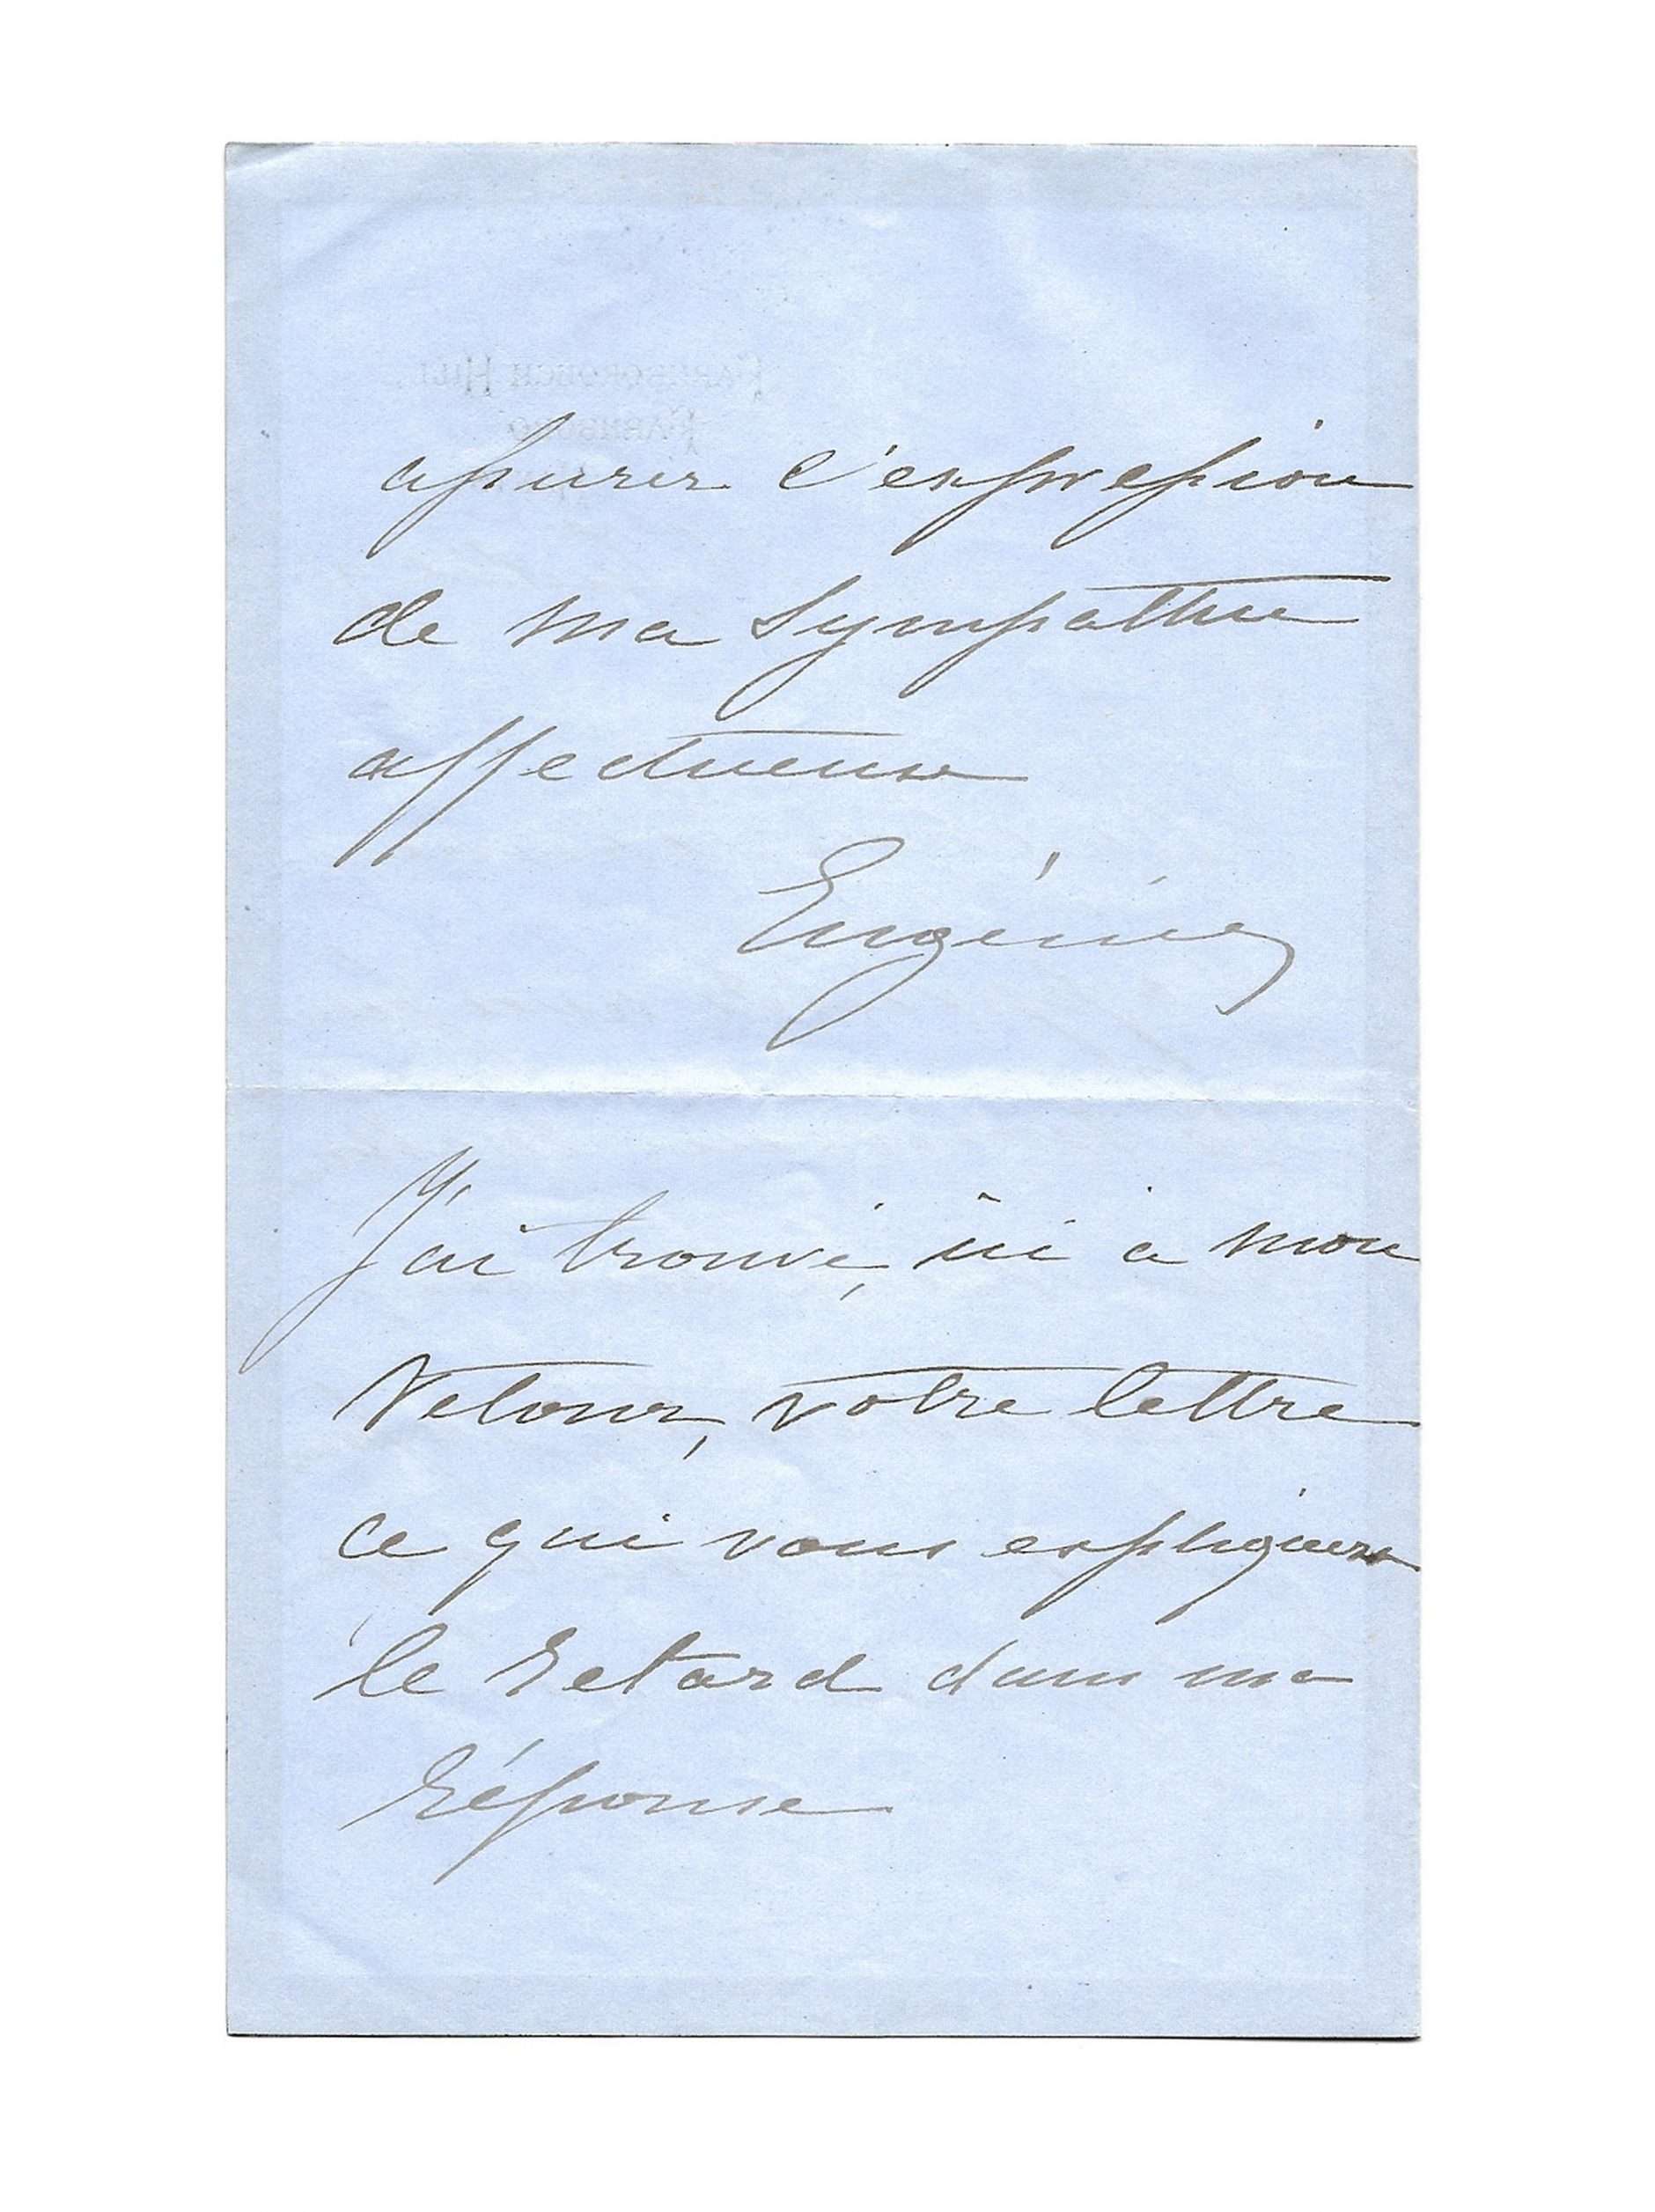 FARNBOROUGH HILL,
FARNBORO
assurer l'expression
de ma sympathie
affectueuse
Eugénie
J'ai trouvé, ici a mon
retour, votre lettre
ce qui vous expliquera
le retard dans ma
réponse